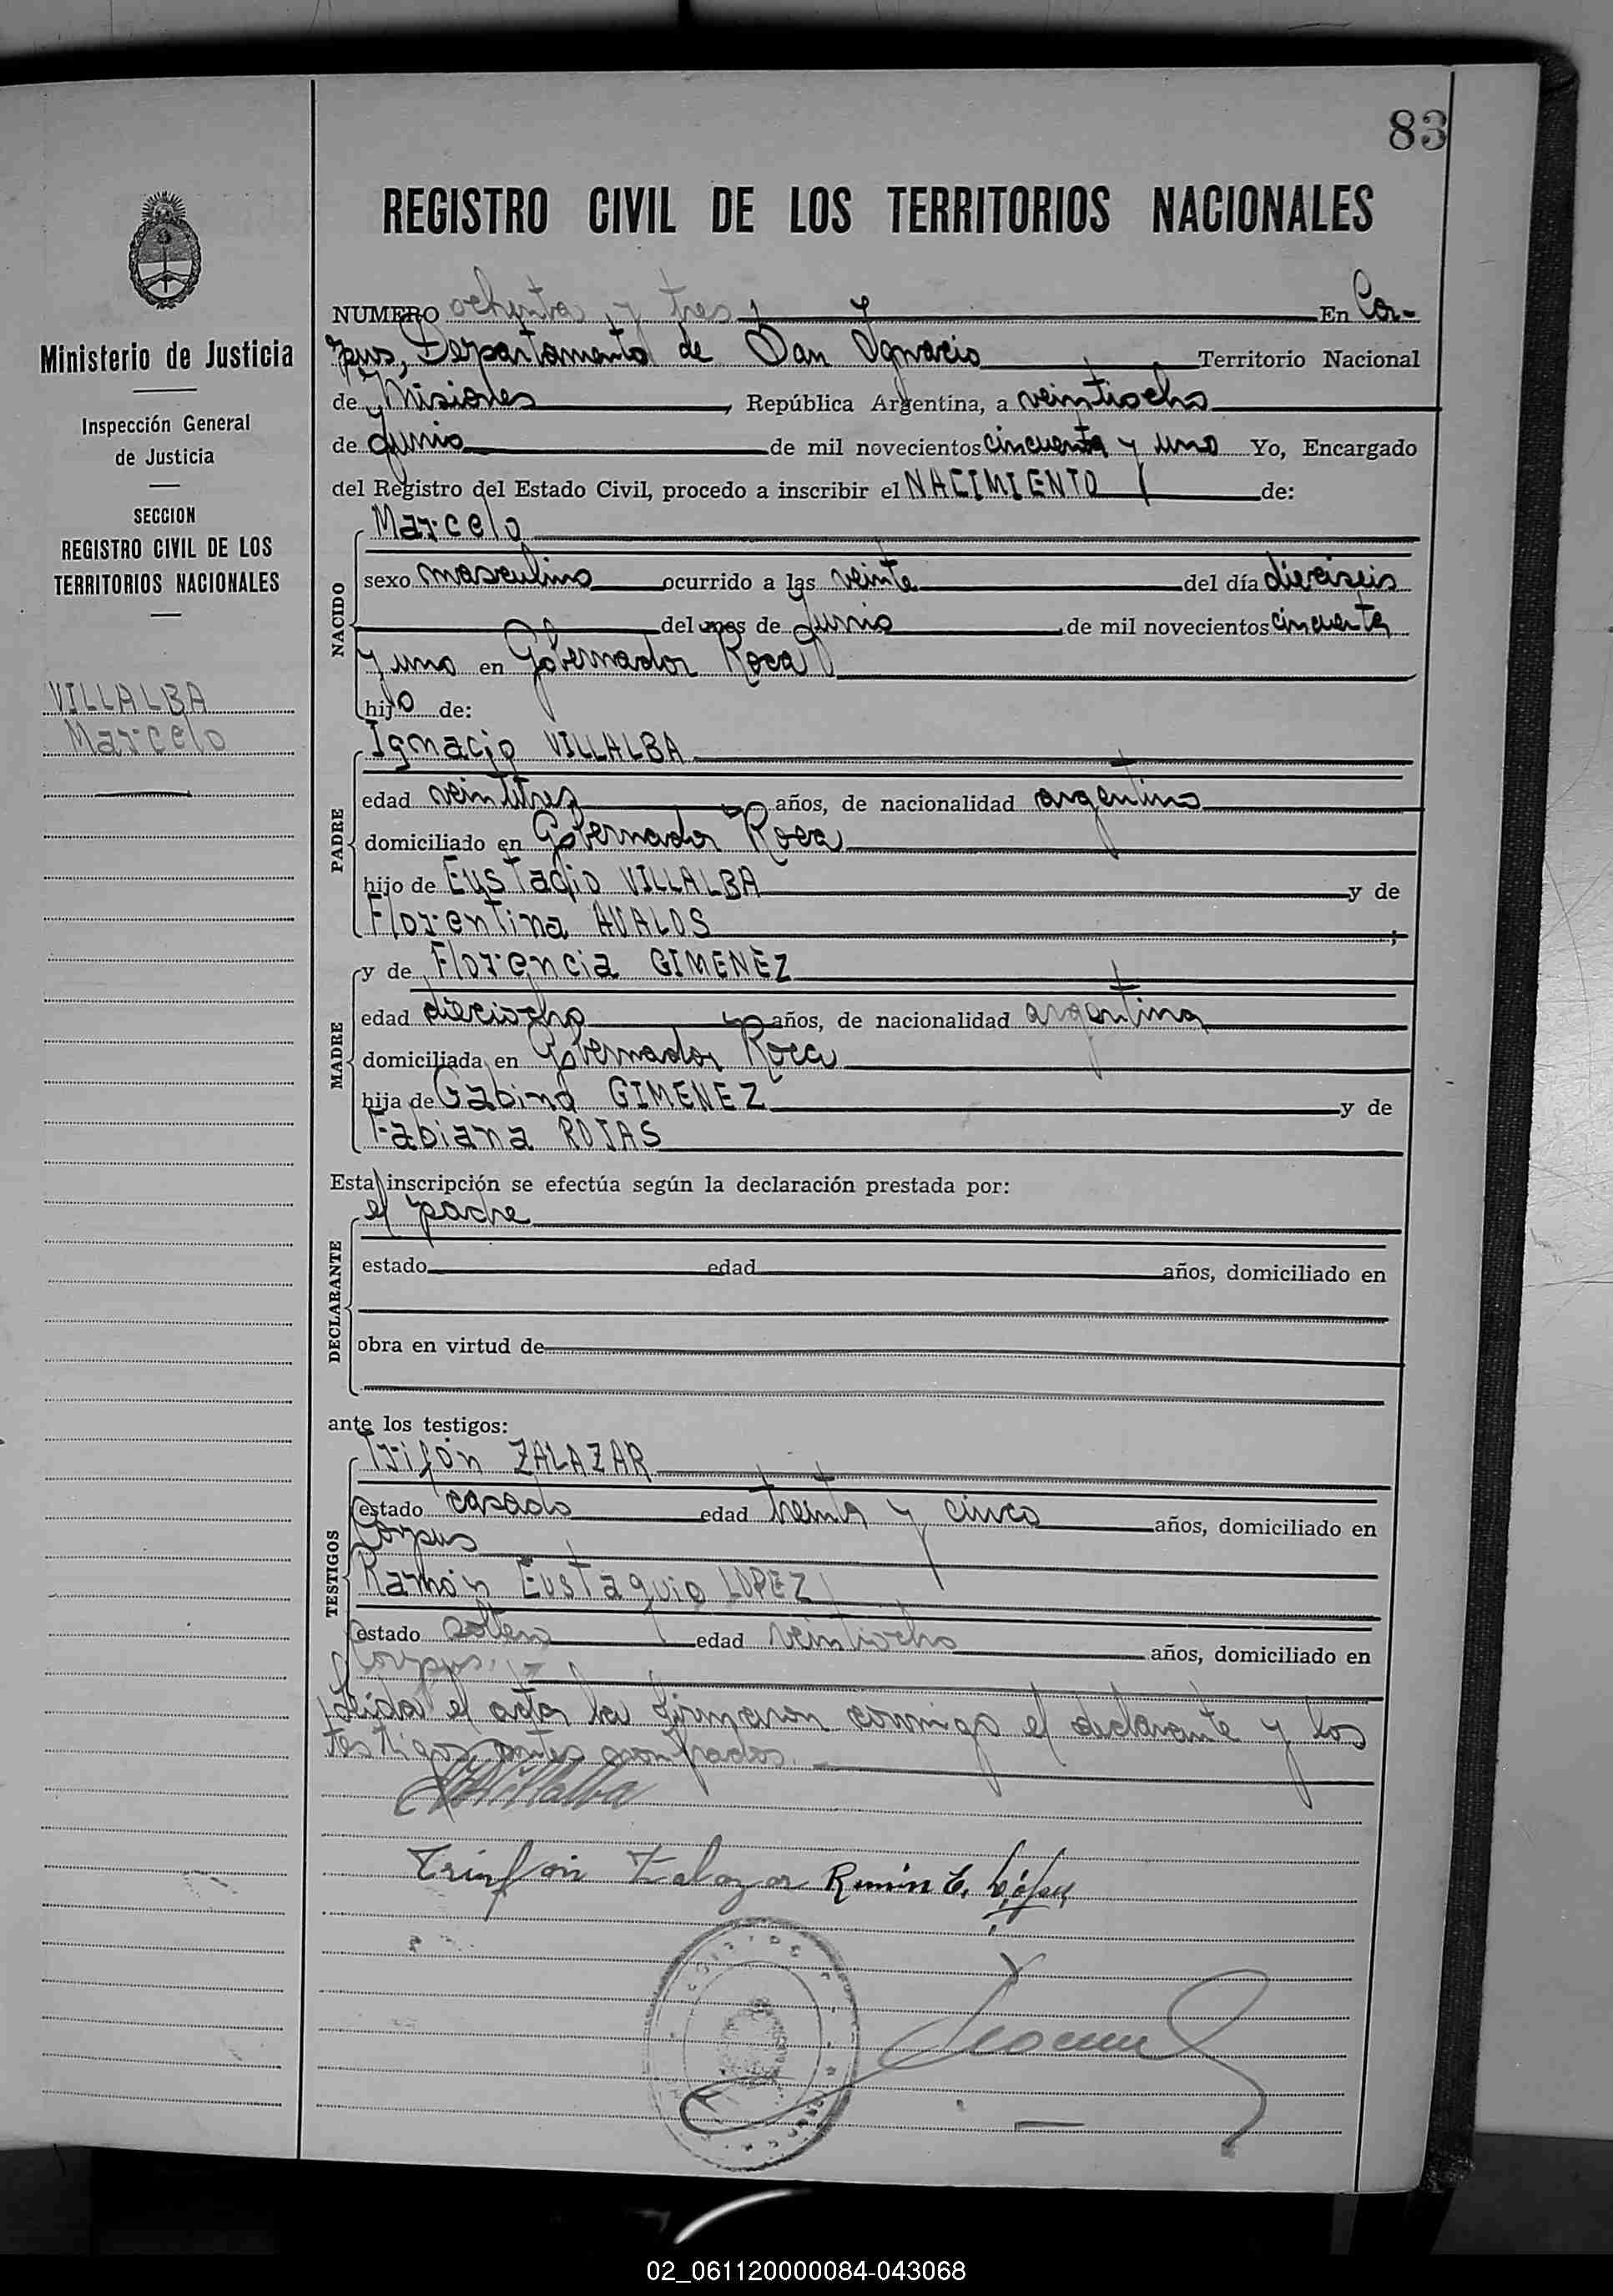 83
REGISTRO CIVIL DE LOS TERRITORIOS NACIONALES
Ministerio de Justicia
Inspección General
de Justicia
SECCION
REGISTRO CIVIL DE LOS
TERRITORIOS NACIONALES
VILLALBA
Marcelo
NUMERO ochenta y tres En Cor-
pus, Departamento de San Ignacio Territorio Nacional
de Misiones, República Argentina, a veintiocho
de Junio de mil novecientos cincuenta y uno Yo, Encargado
del Registro del Estado Civil, procedo a inscribir el NACIMIENTO de:
NACIDO
Marcelo
sexo masculino ocurrido a las veinte del día dieciseis
del mes de Junio de mil novecientos cincuenta
y uno en Gobernador Roca
hijo de:
PADRE
Ignacio VILLALBA
edad veintitres años, de nacionalidad argentino
domiciliado en Gobernador Roca
hijo de Eustacio VILLALBA y de
Florentina AVALOS ;
MADRE
y de Florencia GIMENEZ
edad dieciocho años, de nacionalidad argentina
domiciliada en Gobernador Roca
hija de Gabino GIMENEZ y de
Fabiana ROJAS
Esta inscripción se efectúa según la declaración prestada por:
DECLARANTE
el padre
estado edad años, domiciliado en
obra en virtud de
ante los testigos:
TESTIGOS
Trifón ZALAZAR
estado casado edad treinta y cinco años, domiciliado en
Corpus
Ramón Eustaquio LOPEZ
estado soltero edad veintiocho años, domiciliado en
Corpus.
Leida el acta la firmaron conmigo el declarante y los
testigos antes nombrados.
Villalba
Trinfon Zalazar Ramón E. López
02_061120000084-043068